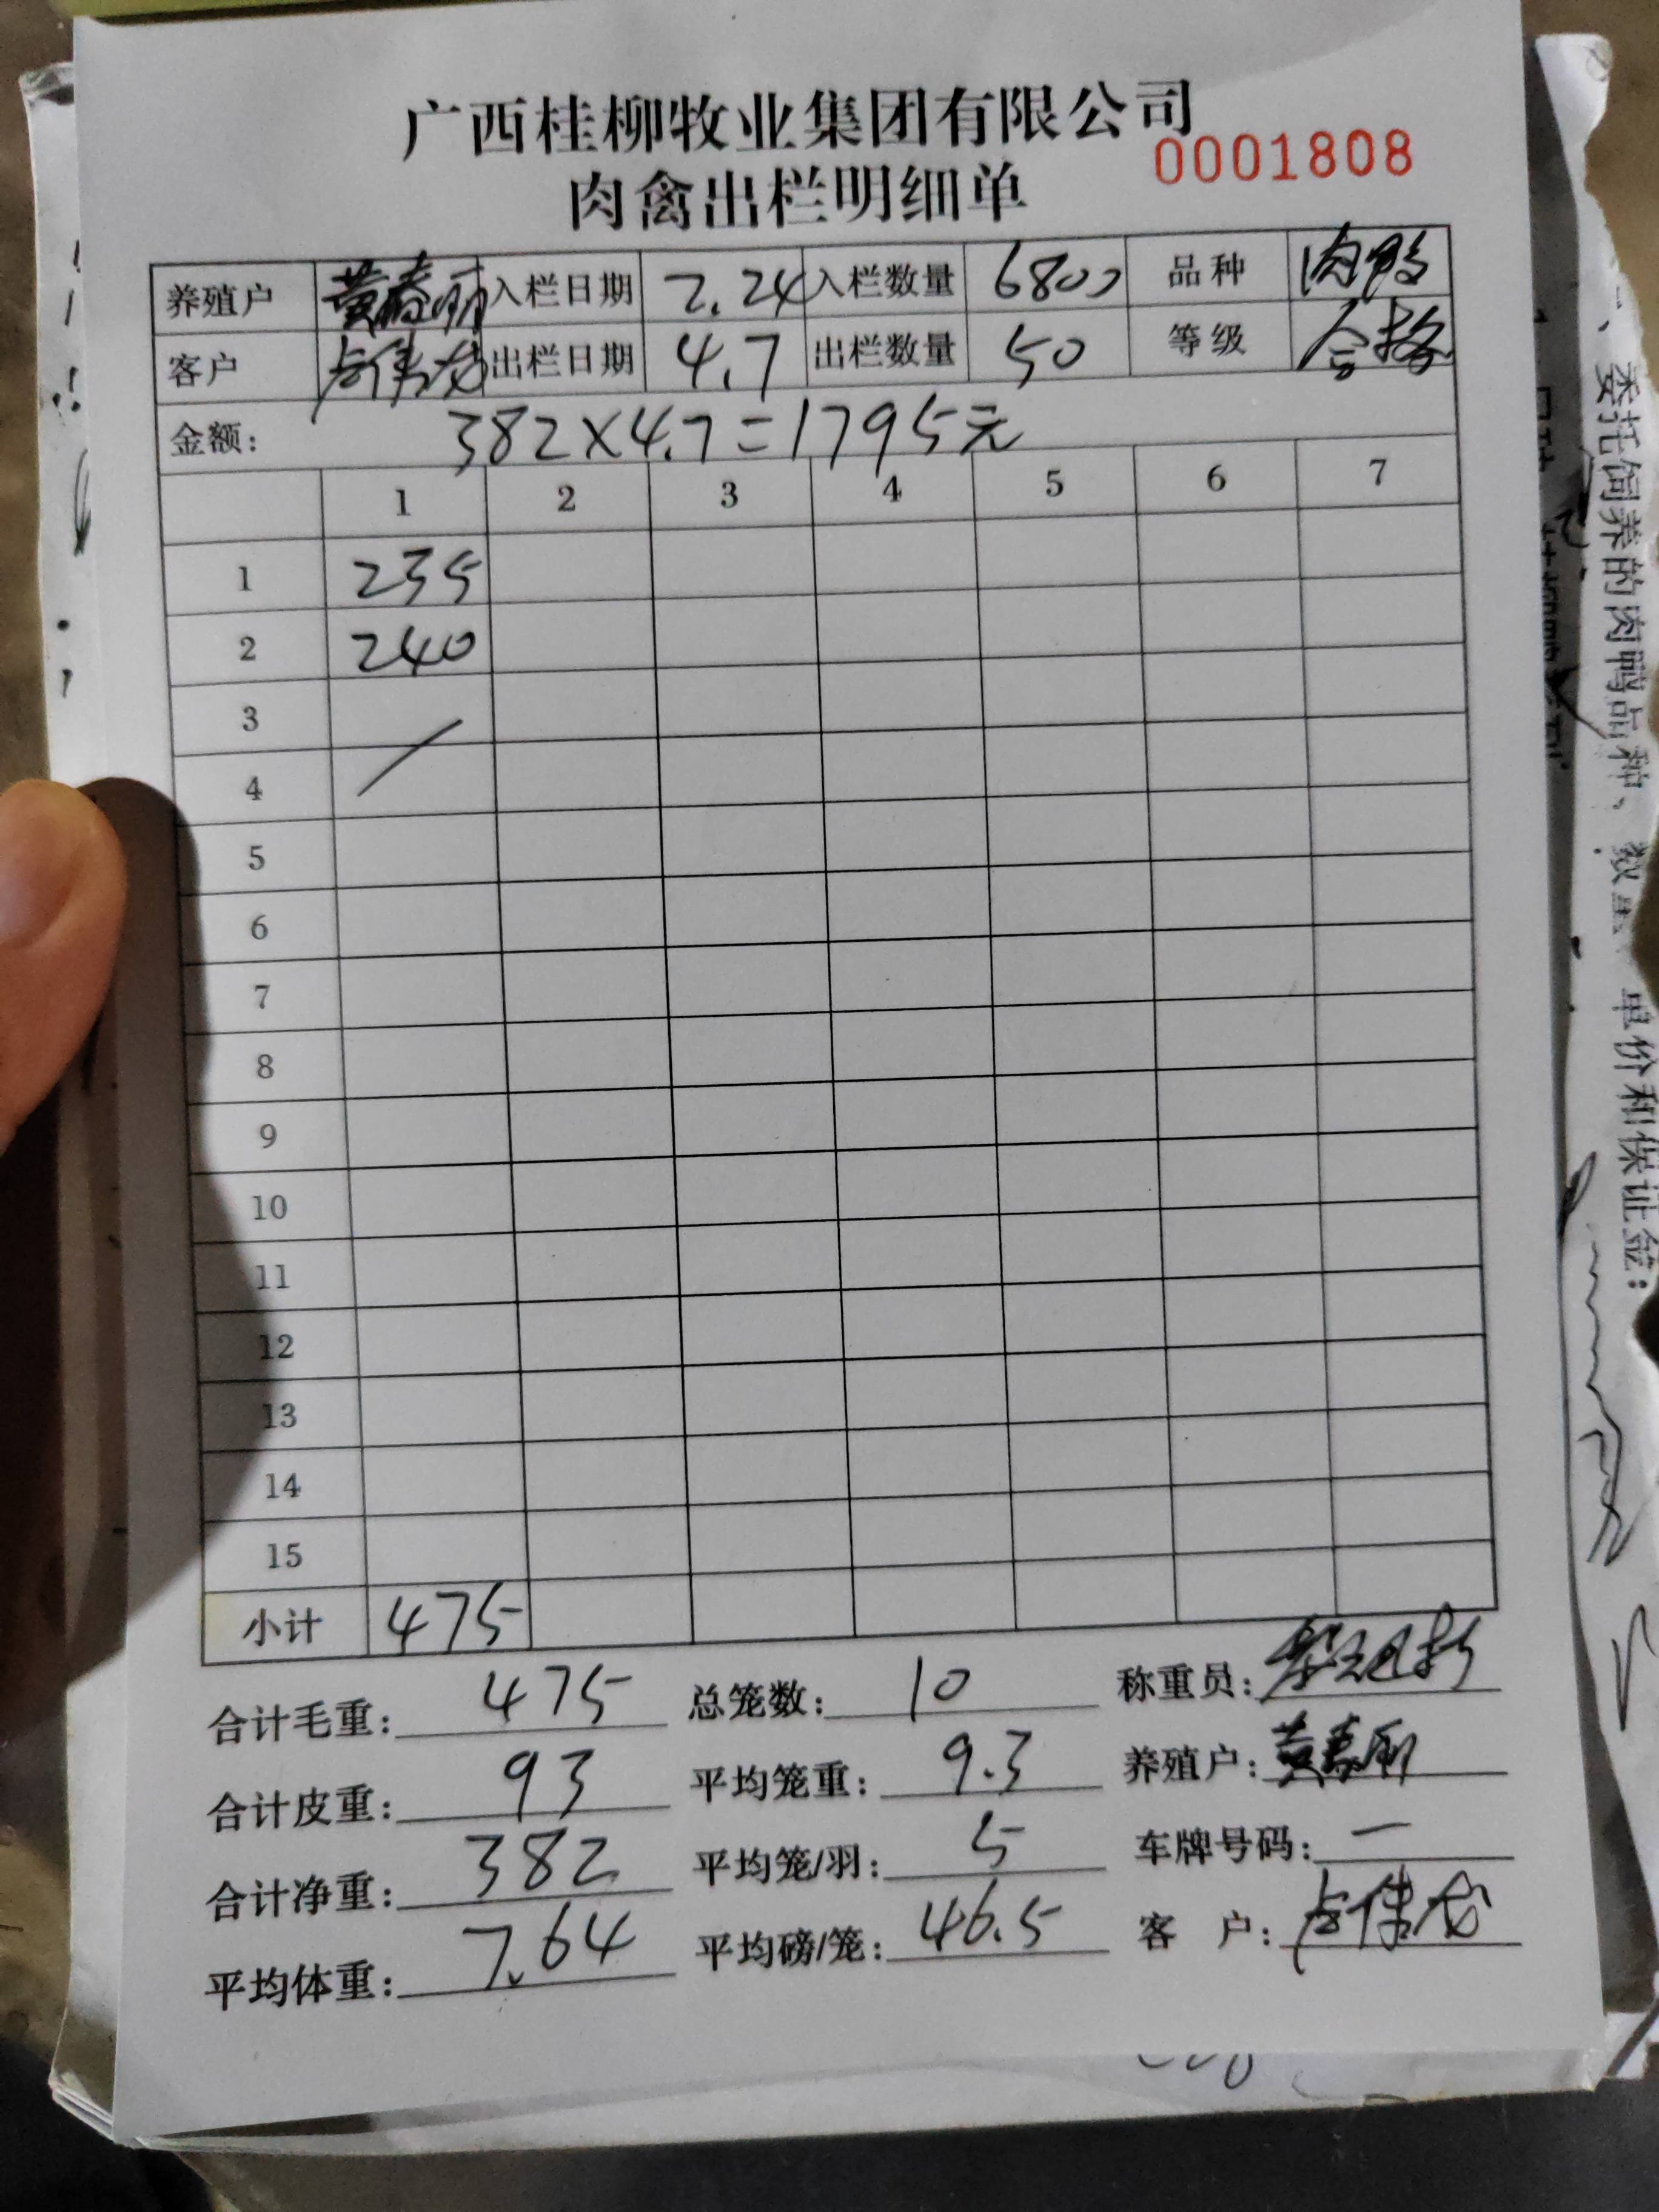 广西桂柳牧业集团有限公司
0001808
肉禽出栏明细单
养殖户 黄春丽 入栏日期 2.24 入栏数量 6800 品种 肉鸭
客户 卢伟龙 出栏日期 4.7 出栏数量 50 等级 合格
金额: 382×4.7=1795元
1 2 3 4 5 6 7
1 235
2 240
3
4
5
6
7
8
9
10
11
12
13
14
15
小计 475
合计毛重: 475 总笼数: 10 称重员:
合计皮重: 93 平均笼重: 9.3 养殖户: 黄春丽
合计净重: 382 平均笼/羽: 5 车牌号码: 一
平均体重: 7.64 平均磅/笼: 46.5 客 户: 卢伟龙
委托饲养的肉鸭品种、数量、单价和保证金: